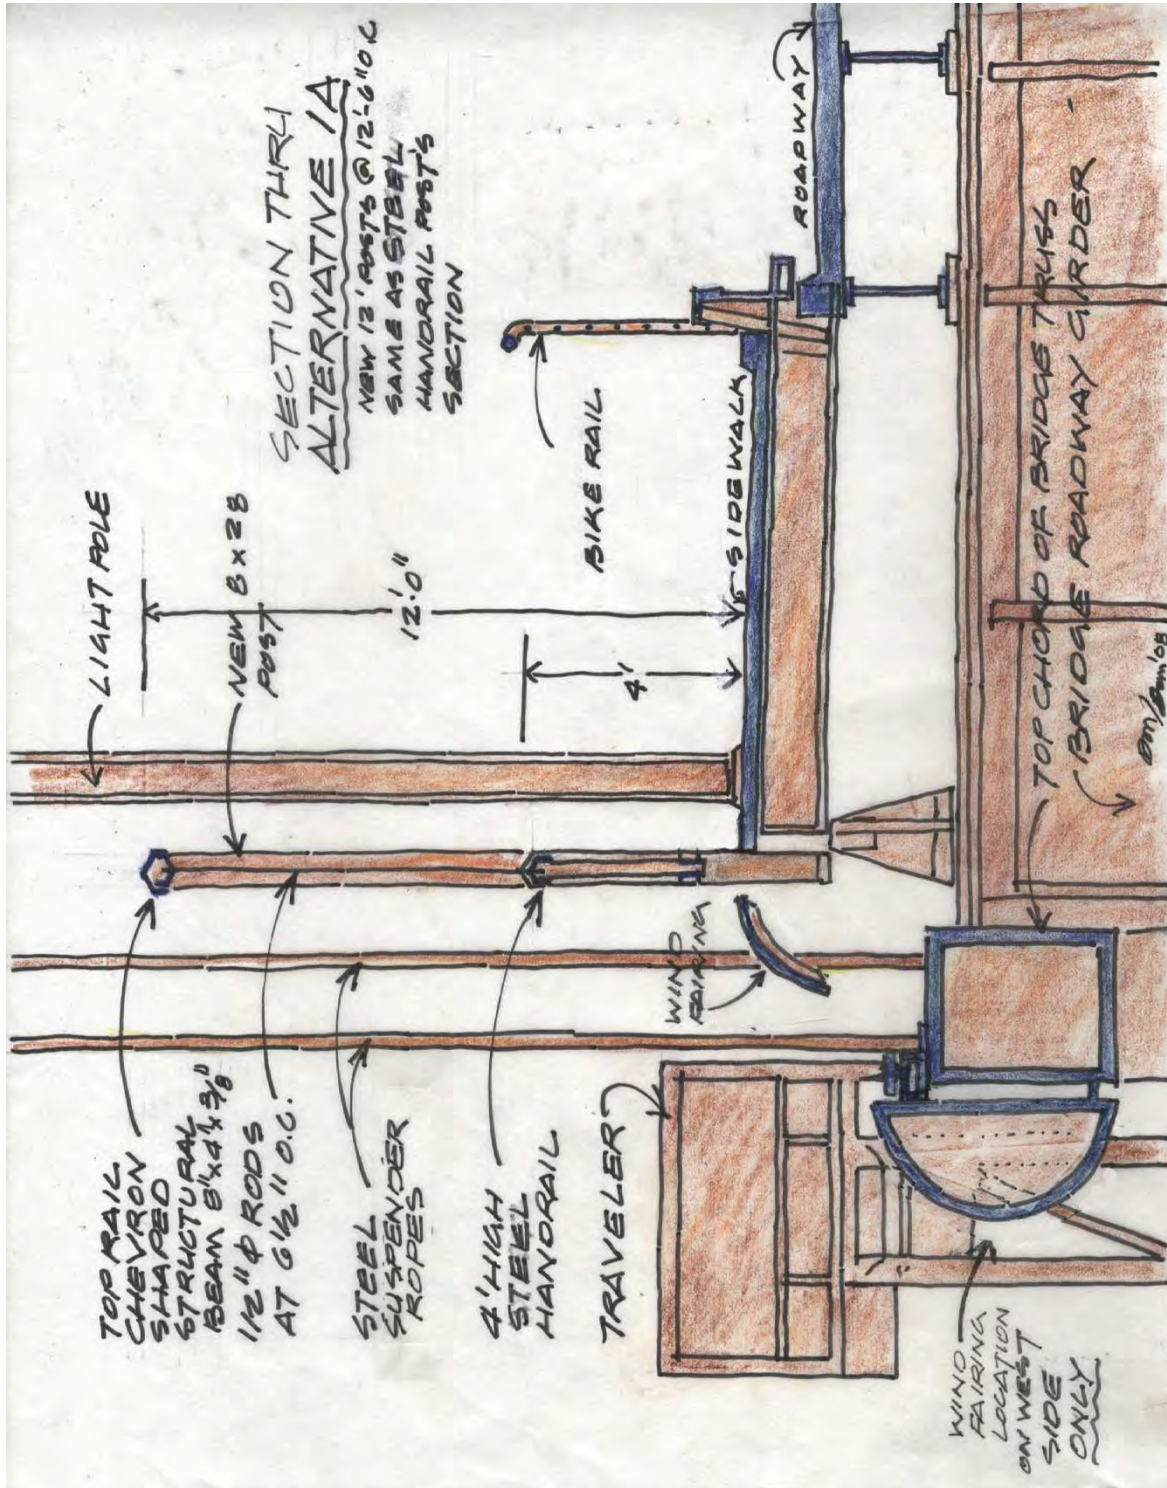 SECTION THRU
ALTERNATIVE 1A
NEW 12' POSTS @ 12'-6" O.C
SAME AS STEEL
HANDRAIL POST'S
SECTION
LIGHT POLE
NEW 8 x 28
POST
12'.0"
4'
BIKE RAIL
SIDEWALK
ROADWAY
TOP RAIL
CHEVIRON
SHAPED
STRUCTURAL
BEAM 8"x4"x3/8"
1/2" ϕ RODS
AT 6 1/2" O.C.
STEEL
SUSPENDER
ROPES
4' HIGH
STEEL
HANDRAIL
WIND
FAIRING
TRAVELER
WIND
FAIRING
LOCATION
ON WEST
SIDE
ONLY
TOP CHORD OF BRIDGE TRUSS
BRIDGE ROADWAY GIRDER